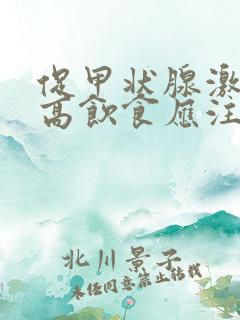 促甲状腺激
高飲食應注
北川景子
未经同意禁止转载